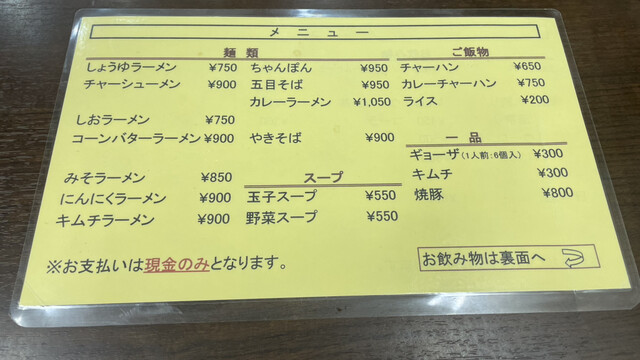 メニュー
麺 類
しょうゆラーメン ¥750
チャーシューメン ¥900
しおラーメン ¥750
コーンバターラーメン ¥900
みそラーメン ¥850
にんにくラーメン ¥900
キムチラーメン ¥900
ちゃんぽん ¥950
五目そば ¥950
カレーラーメン ¥1,050
やきそば ¥900
スープ
玉子スープ ¥550
野菜スープ ¥550
ご飯物
チャーハン ¥650
カレーチャーハン ¥750
ライス ¥200
一 品
ギョーザ(1人前:6個入) ¥300
キムチ ¥300
焼豚 ¥800
※お支払いは現金のみとなります。
お飲み物は裏面へ